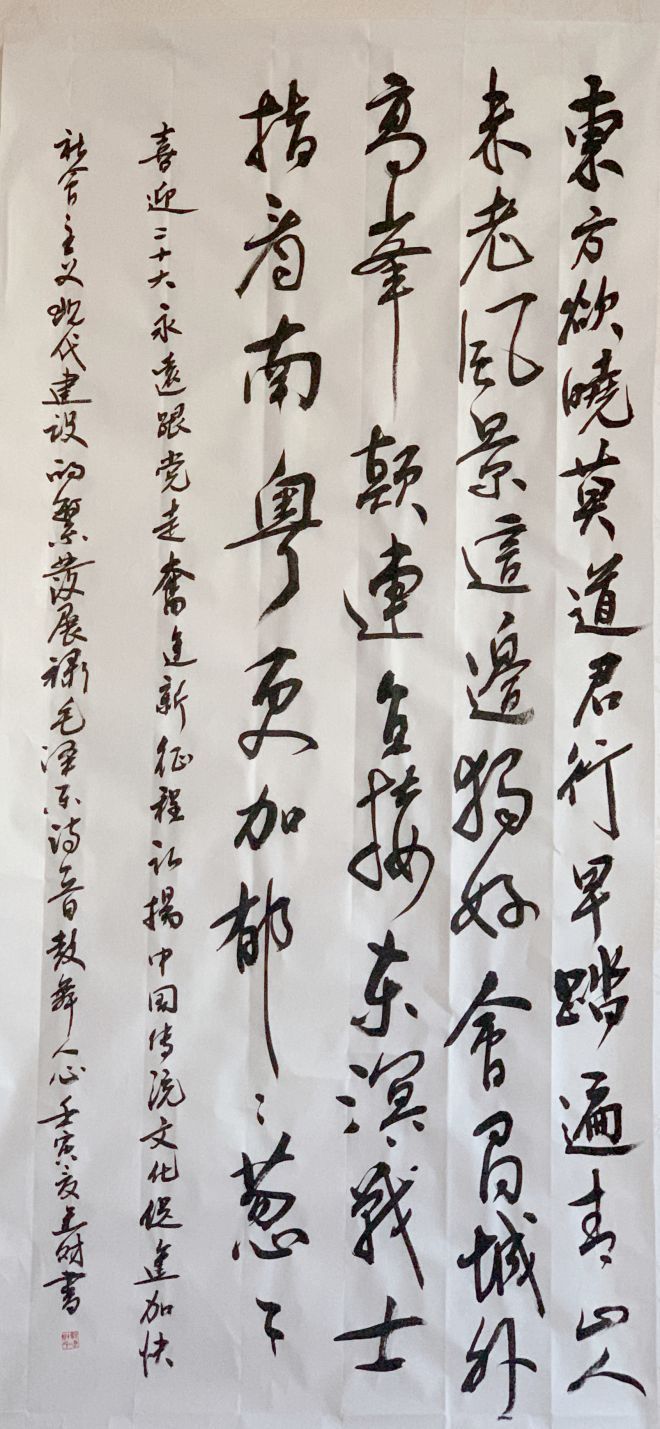 東方欲曉莫道君行早踏遍青山人
未老风景這邊独好會昌城外
高峯颠連直接东溟戰士
指看南粤更加郁々葱々
喜迎二十大永遠跟党走奮進新征程弘揚中国传统文化促進加快
社会主义现代建设的繁發展毛泽东诗音鼓舞人心壬寅夏财書